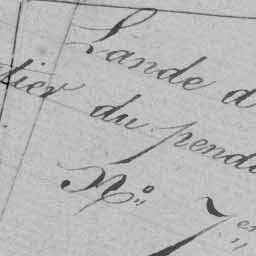 Lande d
tier du pend
N° 7